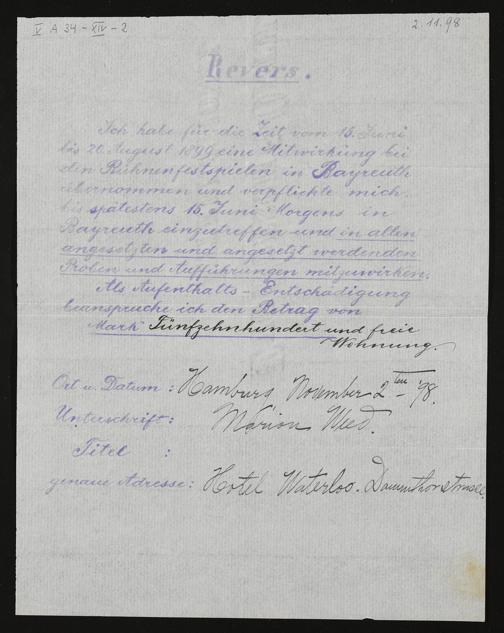 V A 34-XIV-2
2.11.98
Revers.
Ich habe für die Zeit vom 15. Juni
bis 20. August 1899 eine Mitwirkung bei
den Bühnenfestspielen in Bayreuth
übernommen und verpflichte mich
bis spätestens 15. Juni Morgens in
Bayreuth einzutreffen und in allen
angesetzten und angesetzt werdenden
Proben und Aufführungen mitzuwirken.
Als Aufenthalts-Entschädigung
beanspruche ich den Betrag von
Mark Fünfzehnhundert und freie
Wohnung.
Ort u. Datum: Hamburg November 2ten 98.
Unterschrift: Marion Weed.
Titel :
genaue Adresse: Hotel Waterloo. Dammthorstrasse.